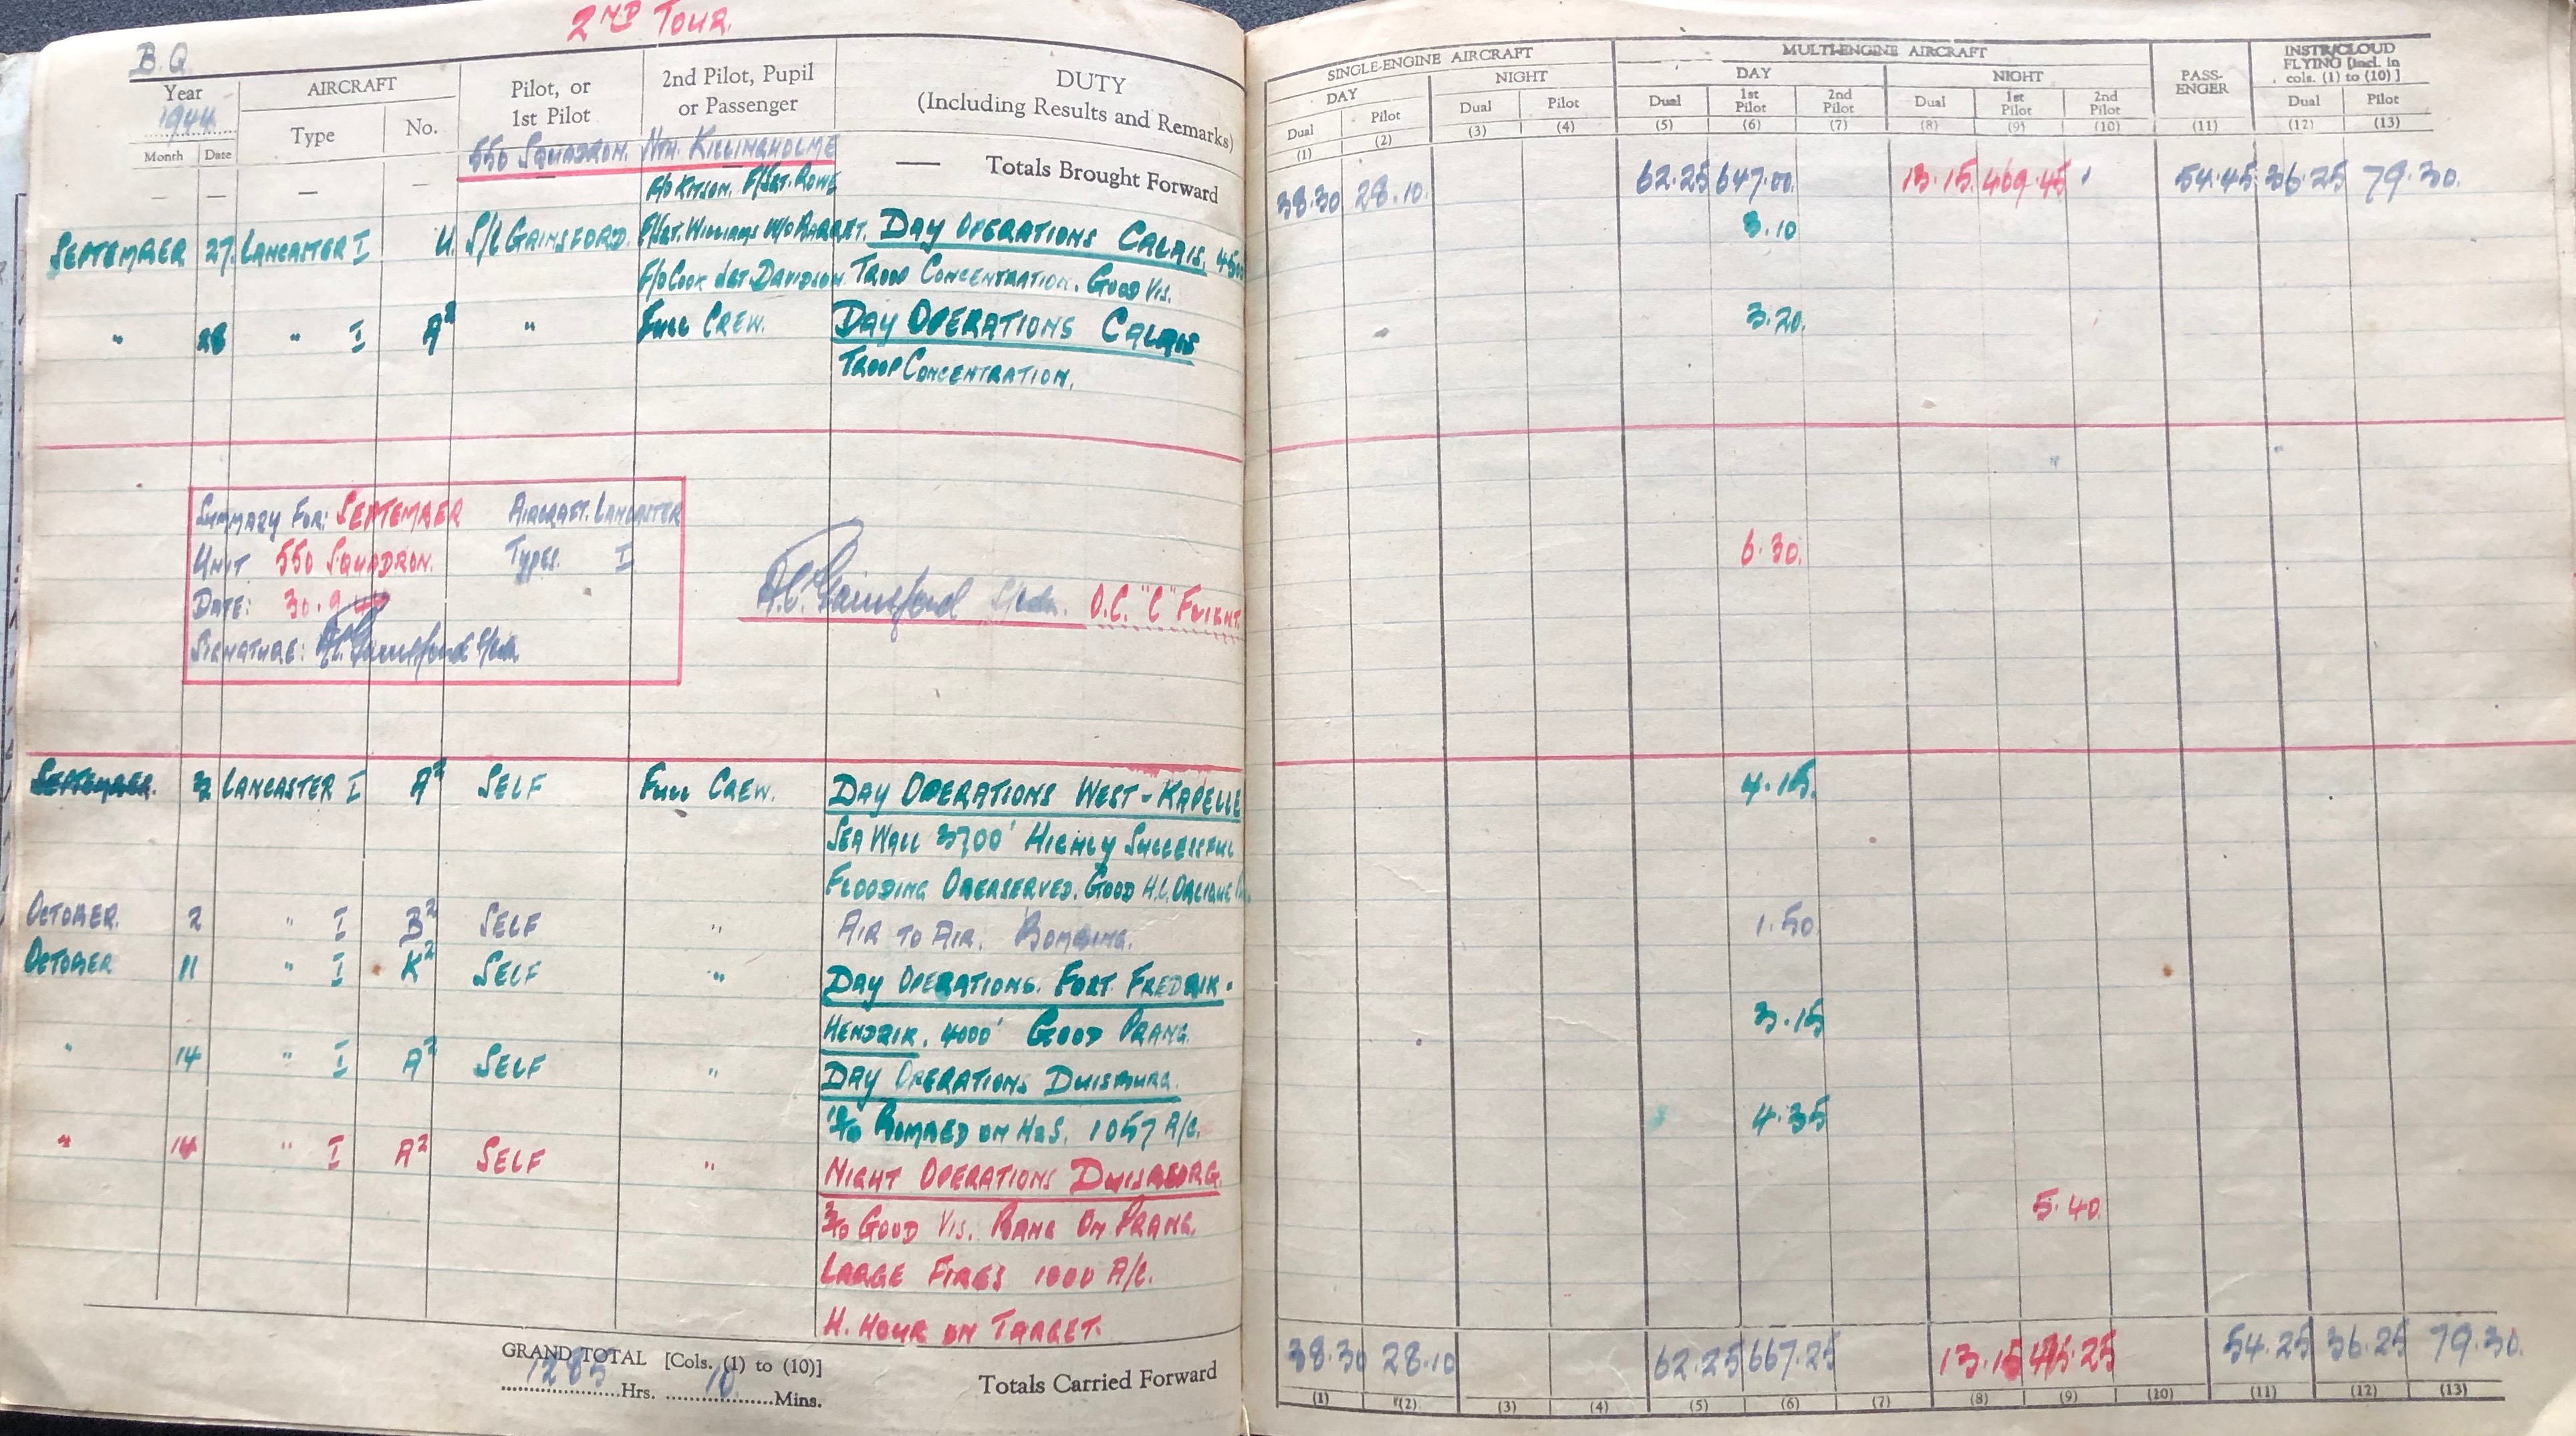 2ND TOUR.
B.Q.
Year AIRCRAFT Pilot, or 2nd Pilot, Pupil DUTY
1944 Type No. 1st Pilot or Passenger (Including Results and Remarks)
Month Date 550 SQUADRON. NTH. KILLINGHOLME
— — — — — — Totals Brought Forward
F/O KITSON. F/SGT. ROWE
SEPTEMBER 27. LANCASTER I U. S/L GAINSFORD. F/SGT. WILLIAMS W/O BARRET. DAY OPERATIONS CALAIS.
F/O COOK SGT. DAVIDSON. TROOP CONCENTRATION. GOOD VIS.
" 28 " I A2 " FULL CREW. DAY OPERATIONS CALAIS
TROOP CONCENTRATION.
SUMMARY FOR: SEPTEMBER AIRCRAFT. LANCASTER
UNIT 550 SQUADRON. TYPES. I
DATE: 30.9.44
SIGNATURE: Gainsford S/Ldr.
Gainsford S/Ldr. O.C. "C" FLIGHT.
SEPTEMBER. 3 LANCASTER I A2 SELF FULL CREW. DAY OPERATIONS WEST-KAPELLE
SEA WALL 3700' HIGHLY SUCCESSFUL
FLOODING OBERSERVED. GOOD H.L. OBLIQUE
OCTOBER. 2 " I B2 SELF " AIR TO AIR. BOMBING.
OCTOBER 11 " I K2 SELF " DAY OPERATIONS. FORT FREDRIK-
HENDRIK. 4000' GOOD PRANG.
" 14 " I A2 SELF " DAY OPERATIONS DUISBURG.
BOMBED ON H2S. 1057 A/C.
" 14 " I A2 SELF " NIGHT OPERATIONS DUISBURG.
GOOD VIS. BANG ON PRANG.
LARGE FIRES 1000 A/C.
H. HOUR ON TARGET.
GRAND TOTAL [Cols. (1) to (10)]
1283 Hrs. 10 Mins.
Totals Carried Forward
SINGLE-ENGINE AIRCRAFT MULTI-ENGINE AIRCRAFT PASS-ENGER INSTR/CLOUD FLYING [Incl. in cols. (1) to (10)]
DAY NIGHT DAY NIGHT
Dual Pilot Dual Pilot Dual 1st Pilot 2nd Pilot Dual 1st Pilot 2nd Pilot Dual Pilot
(1) (2) (3) (4) (5) (6) (7) (8) (9) (10) (11) (12) (13)
38.30 28.10. 62.25 647.00. 13.15. 469.45 54.45 36.25 79.30.
3.10
3.20.
6.30.
4.15.
1.50.
3.15
4.35
5.40.
38.30 28.10 62.25 667.25 13.15 475.25 54.25 36.25 79.30.
(1) (2) (3) (4) (5) (6) (7) (8) (9) (10) (11) (12) (13)